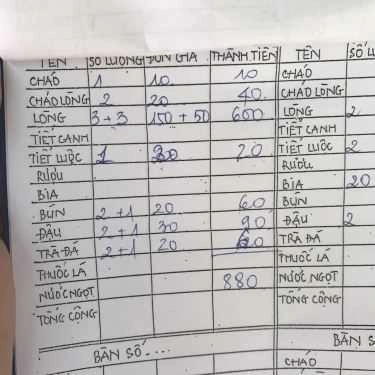 TÊN SỐ LƯỢNG ĐƠN GIÁ THÀNH TIỀN TÊN SỐ L
CHÁO 1 10 10 CHÁO
CHÁO LÒNG 2 20 40 CHÁO LÒNG
LÒNG 3+3 150+50 600 LÒNG 2
TIẾT CANH TIẾT CANH
TIẾT LUỘC 1 20 TIẾT LUỘC 2
RƯỢU RƯỢU
BIA BIA 20
BÚN 2+1 20 60 BÚN
ĐẬU 2+1 30 90 ĐẬU 2
TRÀ ĐÁ 2+1 20 60 TRÀ ĐÁ
THUỐC LÁ THUỐC LÁ
NƯỚC NGỌT 880 NƯỚC NGỌT
TỔNG CỘNG TỔNG CỘNG
BÀN SỐ.... BÀN S
CHÁO